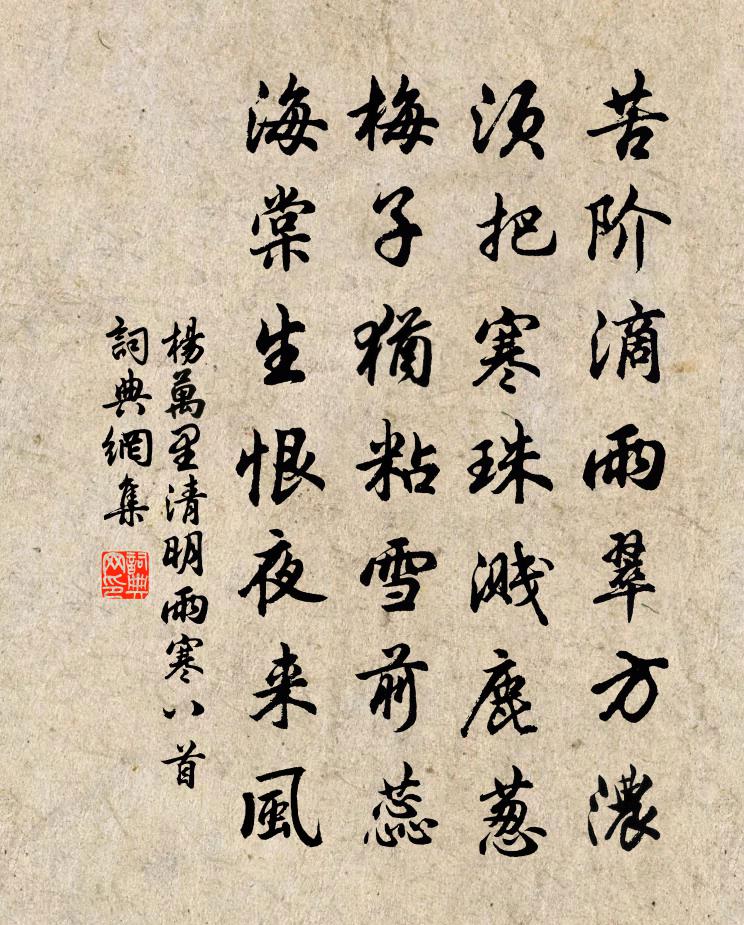 苦阶滴雨翠方濃
须把寒珠溅鹿葱
梅子猶粘雪前蕊
海棠生恨夜来風
楊萬里清明雨寒八首
詞典網集
詞典
网印